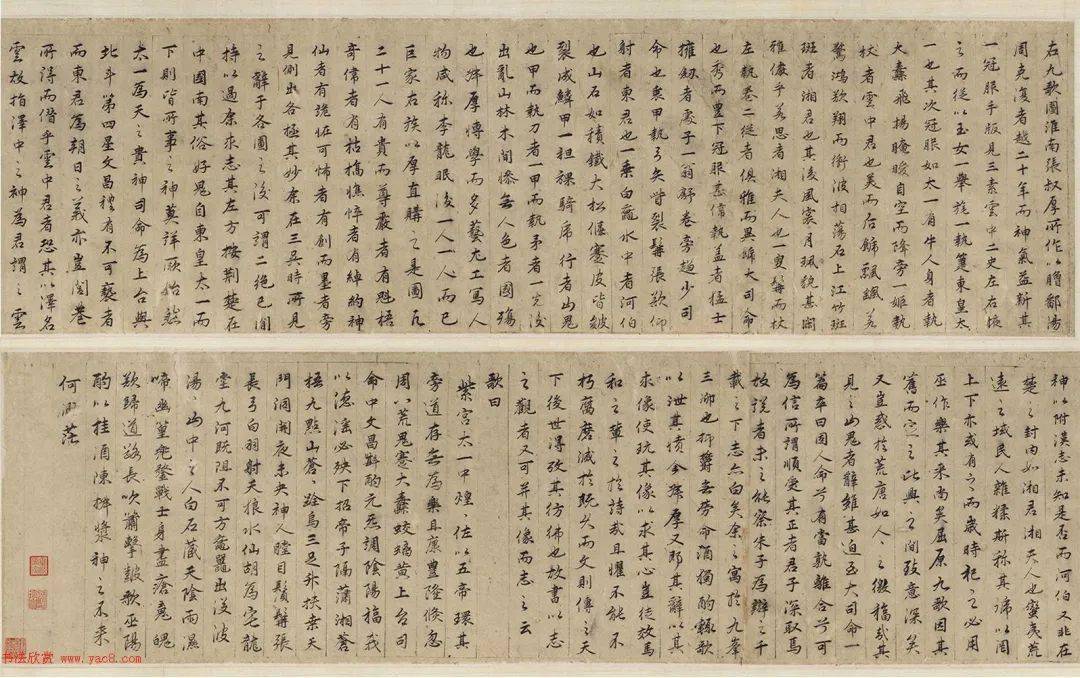 右九歌圖淮南張叔厚所作以贈鄱陽
周克復者越二十年而神氣益新其
一冠服手版見三素雲中二史左右掖
之而從以玉女一舉旄一執篲東皇太
一也其次冠服如太一有牛人身者執
大纛飛揚晻曖自空而降旁一姬執
杖者雲中君也美而后飾飄飄若
驚鴻欲翔而衝波相蕩石上江竹班
班者湘君也其淩風裳月珮貌甚閒
雅儼乎若思者湘夫人也一叟鬅而杖
左執卷二從者俱雅而異大司命
也秀而豐下冠服甚偉執盖者猛士
擁劒者處子一翁舒卷旁趨少司
命也裹甲執弓矢眥裂髯張欲仰
射者東君也一乘白黿水中者河伯
也山石如積鐵大松偃蹇皮皆皴
裂成鱗甲一袒裸騎虎行者山鬼
也甲而執刀者一甲而執矛者一先後
出亂山林木間慘無人色者國殤
也叔厚博學而多藝尤工寫人
物咸称李龍眠後一人而已
巨家右族以厚直購之是圖凡
二十一人有貴而尊嚴者有魁梧
奇偉者有枯槁憔悴者有綽約神
仙者有詭怪可怖者有創而墨者旁
見側出各極其妙康在三具時所見
之辭于各圖之後可謂二絶已間
持以過康求志其左方按荆楚在
中國南其俗好鬼自東皇太一而
下則皆所事之神莫詳厥始然
太一為天之貴神司命為上台與
北斗第四星文昌禮有不可褻者
而東君為朝日之義亦豈閭巷
所得而僭乎雲中君者恐其以澤名
雲故指澤中之神為君謂之雲
神以附漢志未知是否而河伯又非在
楚之封内如湘君湘夫人也蠻夷荒
遠之域民人雜糅斯称其諦以固
上下亦或有之而歲時祀之必用
巫作樂其来尚矣屈原九歌因其
舊而定之比興之間致意深矣
又豈惑於荒唐如人之徼福哉其
見之山鬼者辭雖甚迫至大司命一
篇卒曰固人命兮有當孰離合兮可
為信所謂順受其正者君子深取焉
故說者未之能察朱子為辯之千
載之下志亦白矣余之寓於九峯
三泖也抑鬱無勞命酒獨酌輒歌
以泄其憤今叔厚又即其辭以
求像使玩其像以求其心豈徒效馬
和之軰之於詩哉且懼不能不
朽腐磨滅於既久而文則傳之天
下後世得攷其彷彿也故書以志
之觀者又可并其像而志之云
歌曰
紫宫太一中煌煌佐以五帝環其
旁道存無為樂且康豊隆倏忽
周八荒鬼騫大纛蛟螭黄上台司
命中文昌斟酌元炁調陰陽福我
以德滛必殃下招帝子隔瀟湘蒼
梧九點山蒼蒼踆烏三足升扶桒天
門洞開夜未央神人瞠目鬚髯張
長弓白羽射天狼水仙胡為宅龍
堂九河既阻不可方黿鼉出沒波
湯湯山中之人白石藏天陰雨濕
啼幽篁飛鏊戰士身盡瘡鬼魄
欵歸道路長吹簫擊鼓歌巫陽
酌以桂酒陳椒漿神之不来
何渺茫
书法欣赏
www.yac8.com